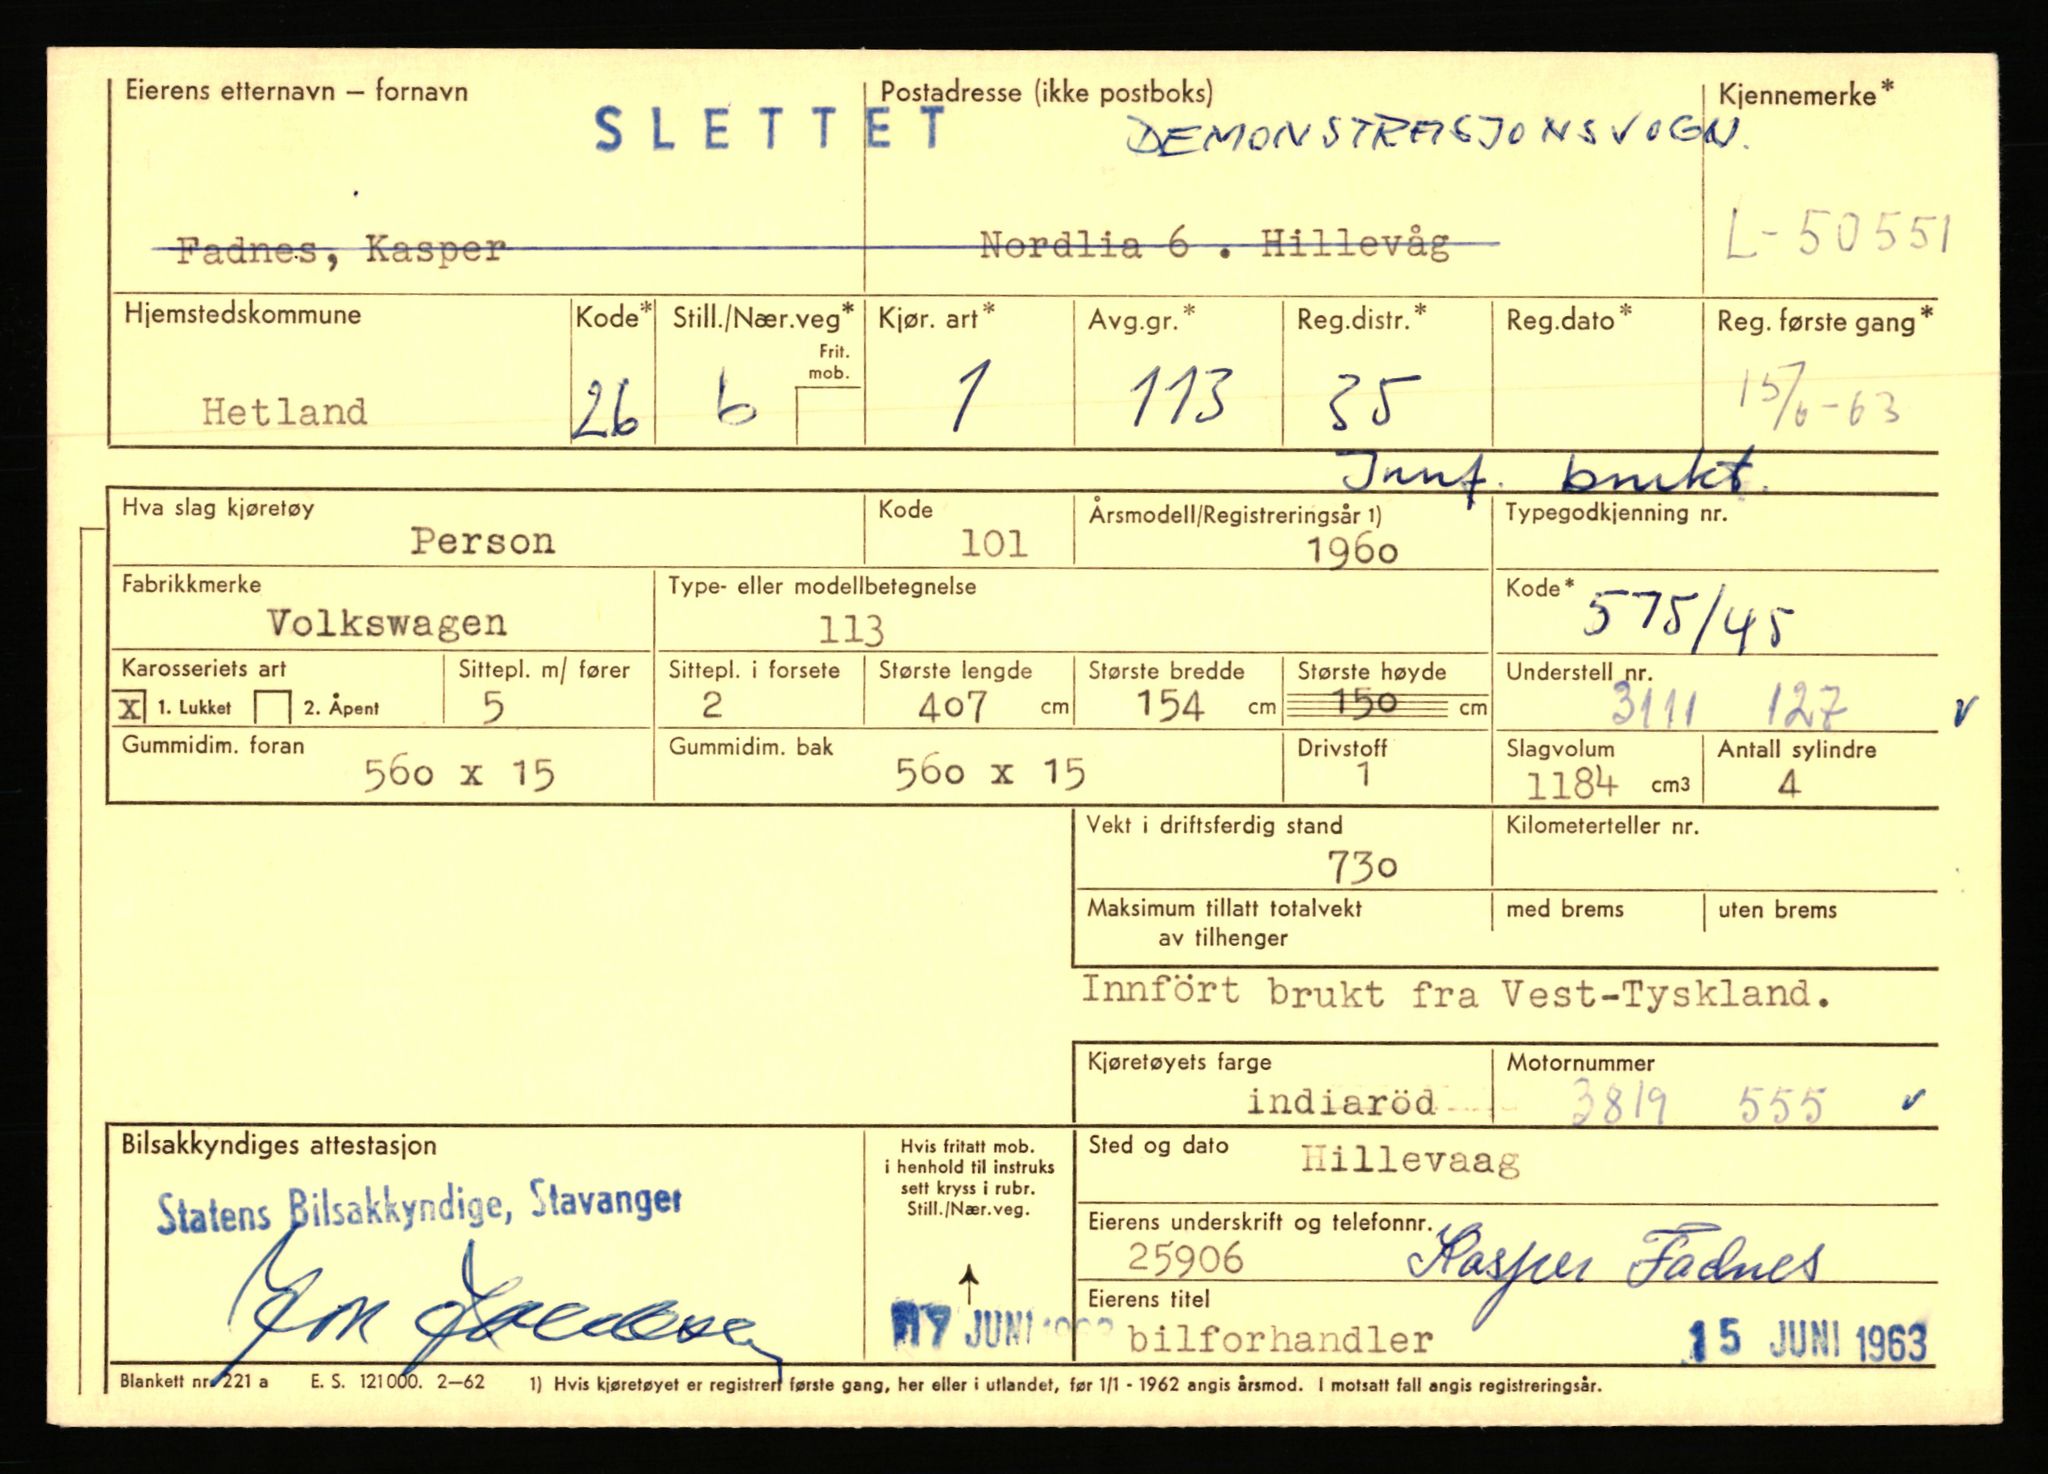 Eierens etternavn – fornavn Postadresse (ikke postboks) Kjennemerke*
SLETTET DEMONSTRASJONSVOGN.
Fadnes, Kasper Nordlia 6 . Hillevåg L-50551
Hjemstedskommune Kode* Still./Nær.veg* Kjør. art* Avg.gr.* Reg.distr.* Reg.dato* Reg. første gang*
Frit.
mob.
Hetland 26 6 1 113 35 15/6-63
Innf. brukt.
Hva slag kjøretøy Kode Årsmodell/Registreringsår 1) Typegodkjenning nr.
Person 101 1960
Fabrikkmerke Type- eller modellbetegnelse Kode*
Volkswagen 113 575/45
Karosseriets art Sittepl. m/ fører Sittepl. i forsete Største lengde Største bredde Største høyde Understell nr.
X 1. Lukket 2. Åpent 5 2 407 cm 154 cm 150 cm 3111 127
Gummidim. foran Gummidim. bak Drivstoff Slagvolum Antall sylindre
560 x 15 560 x 15 1 1184 cm3 4
Vekt i driftsferdig stand Kilometerteller nr.
730
Maksimum tillatt totalvekt med brems uten brems
av tilhenger
Innfört brukt fra Vest-Tyskland.
Kjøretøyets farge Motornummer
indiaröd 3819 555
Bilsakkyndiges attestasjon Hvis fritatt mob. Sted og dato Hillevaag
i henhold til instruks
sett kryss i rubr.
Still./Nær.veg.
Statens Bilsakkyndige, Stavanger
Eierens underskrift og telefonnr.
25906 Kasper Fadnes
Eierens titel
JUNI bilforhandler 15 JUNI 1963
Blankett nr. 221 a E. S. 121000. 2–62 1) Hvis kjøretøyet er registrert første gang, her eller i utlandet, før 1/1 - 1962 angis årsmod. I motsatt fall angis registreringsår.